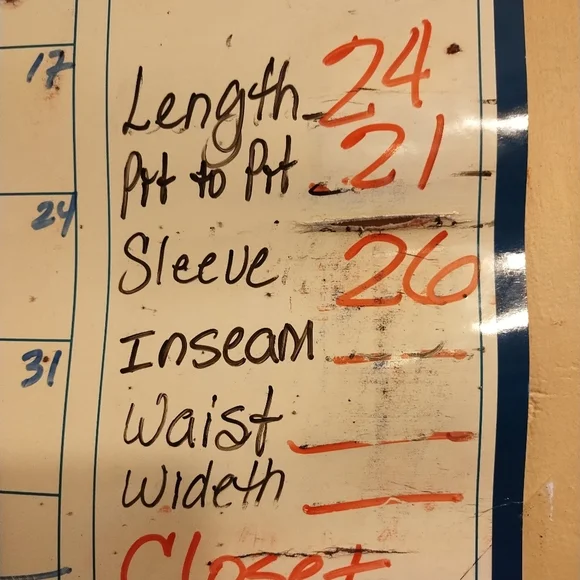 17
Length 24
Prt to Prt 21
24
Sleeve 26
Inseam
31
Waist
Wideth
Closet